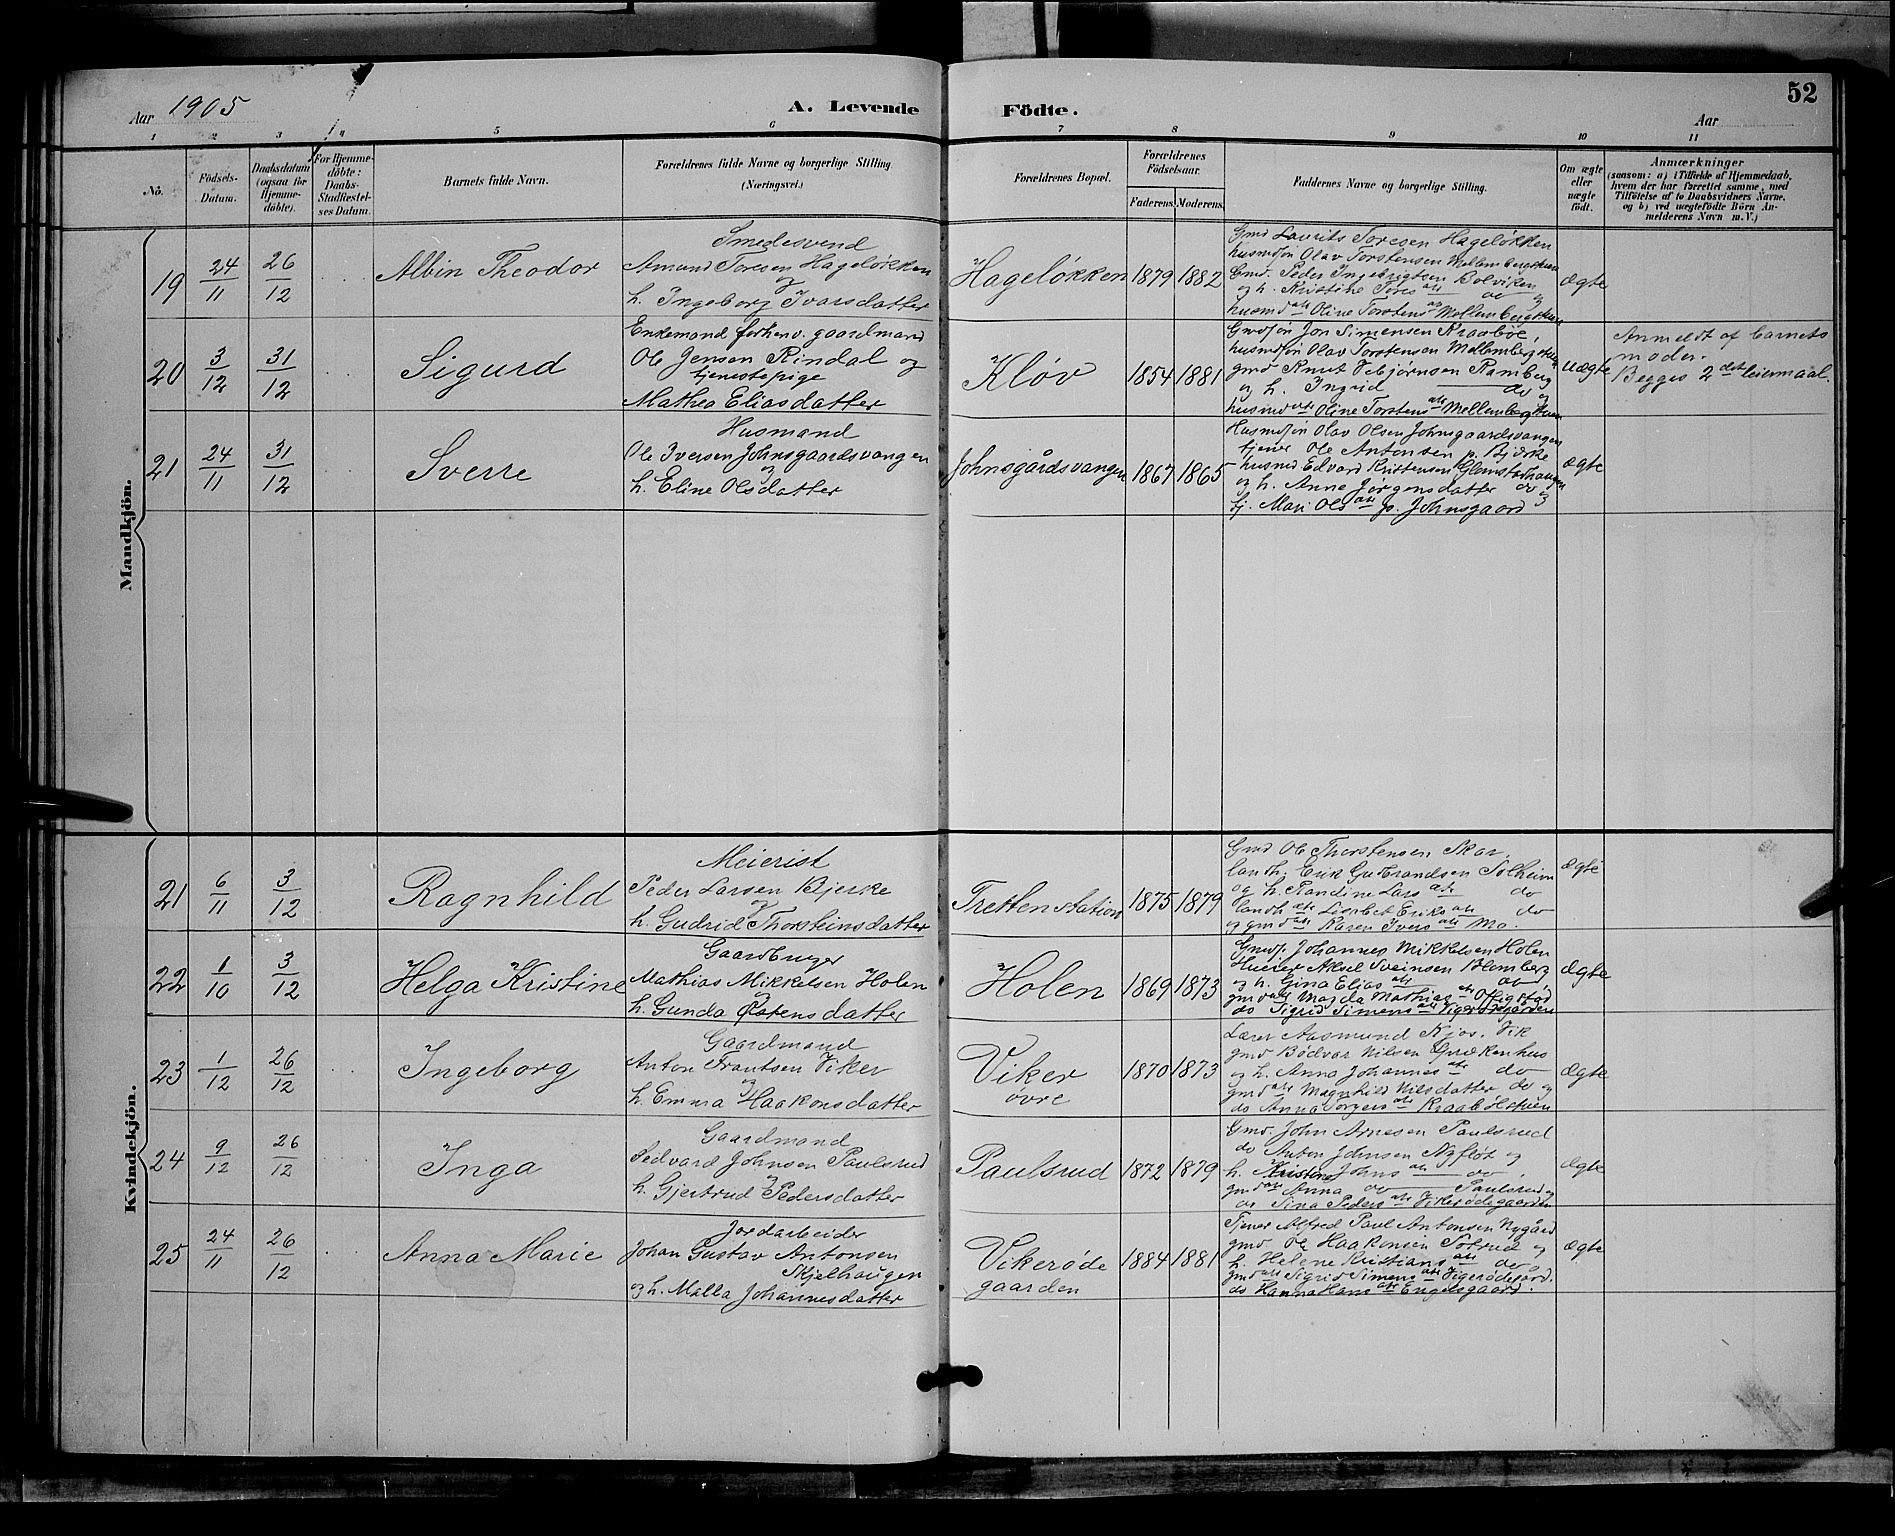 52
Aar 1905
A. Levende
Födte.
Aar
1 2 3 4 5 6 7 8 9 10 11
No.
Födsels-
Datum.
Daabsdatum
(ogsaa for
Hjemme-
döbte).
For Hjemme-
döbte:
Daabs-
Stadfæstel-
ses Datum.
Barnets fulde Navn.
Forældrenes fulde Navne og borgerlige Stilling
(Næringsvei.)
Forældrenes Bopæl.
Forældrenes
Födselsaar.
Faderens. Moderens.
Faddernes Navne og borgerlige Stilling.
Om ægte
eller
uægte
født.
Anmærkninger
(saasom: a) i Tilfælde af Hjemmedaab,
hvem der har forrettet samme, med
Tilföielse af to Daabsvidners Navne,
og b) ved uægtefödte Börn An-
melderens Navn m. V.)
Mandkjön.
19
24/11
26/12
Albin Theodor
Smedesvend
Amund Toresen Hageløkken
og
h. Ingeborg Ivarsdatter
Hageløkken
1879 1882
Gmd Laurits Toresen Hageløkken
husmdsøn Olav Torstensen Mellembergshuen
Gmd. Peder Ingebrigtsen Bolviken
og h. Kristine Tores atr do og
husmd atr Oline Torstens atr Mellembergshuen
Ægte
20
3/12
31/12
Sigurd
Enkemand forhenv. gaardmand
Ole Jensen Rindal og
tjenestepige
Mathea Eliasdatter
Kløv
1854 1881
Gmdsøn Jon Simensen Kraabøe,
husmdsøn Olav Torstensen Mellembergshuen
gmd Knut Vebjørnsen Ramberg
og h. Ingrid do og
husmd atr Oline Torstens atr Mellembergshuen
uægte
Anmeldt af barnets
moder.
Begges 2det leiermaal.
21
24/11
31/12
Sverre
Husmand
Ole Iversen Johnsgaardsvangen
og
h. Eline Olsdatter
Johnsgårdsvangen
1867 1865
Husmdsøn Olav Olsen Johnsgaardsvangen
tjener Ole Antonsen p. Bjørke
husmd Edvard Kristensen
og h. Anne Jørgensdatter do og
tj. Mari Ols atr p. Johnsgaard
ægte
Kvindekjön.
21
6/11
3/12
Ragnhild
Meierist
Peder Larsen Bjerke
og
h. Gudrid Thorsteinsdatter
Tretten station
1875 1879
Gmd Ole Thorstensen Skar,
landh. Erik Gudbrandsen Solheim
og h. Randine Lars atr do
landh atr Lisbet Eriks atr do
og gmd atr Karen Ivers atr Mo.
Ægte
22
1/10
3/12
Helga Kristine
Gaardbruger
Mathias Mikkelsen Holen
og
h. Gunda Østensdatter
Holen
1869 1873
Gmds. Johannes Mikkelsen Holen
Huseier Aksel Sveinsen Blomberg
og h. Gina Elias atr do,
gmd atr Magda Mathias atr Offigstad
do Sigrid Simens atr Vigerødegården
Ægte
23
1/12
26/12
Ingeborg
Gaardmand
Anton Frantsen Viker
og
h. Emma Haakonsdatter
Viker
øvre
1870 1873
Lærer Aasmund Kjos. Vik
gmd Bødvar Nilsen Grækenhus
og h. Anna Johannes atr do
gmd atr Magnhild Nilsdatter do og
do Anna Torgers atr Kraabølstuen
Ægte
24
9/12
26/12
Inga
Gaardmand
Sedvard Johnsen Paulsrud
og
h. Gjertrud Pedersdatter
Paulsrud
1872 1879
Gmd. John Arnesen Paulsrud
do Anton Johnsen Nyfløt og
h. Kristene Johns atr do,
gmd atr Anna do Paulsrud og
do Sina Peders atr Vikerødegaarden
Ægte
25
24/11
26/12
Anna Marie
Jordarbeider
Johan Gustav Antonsen
Skjelhaugen
og h. Malla Johannesdatter
Vikerøde
gaarden
1884 1881
Tjener Alfred Paul Antonsen Nygård
gmd. Ole Haakonsen Solrud og
h. Helene Kristians atr do,
gmd atr Sigrid Simens atr Vigerødegård.
do Hanna Hans atr Engelsgaard.
Ægte